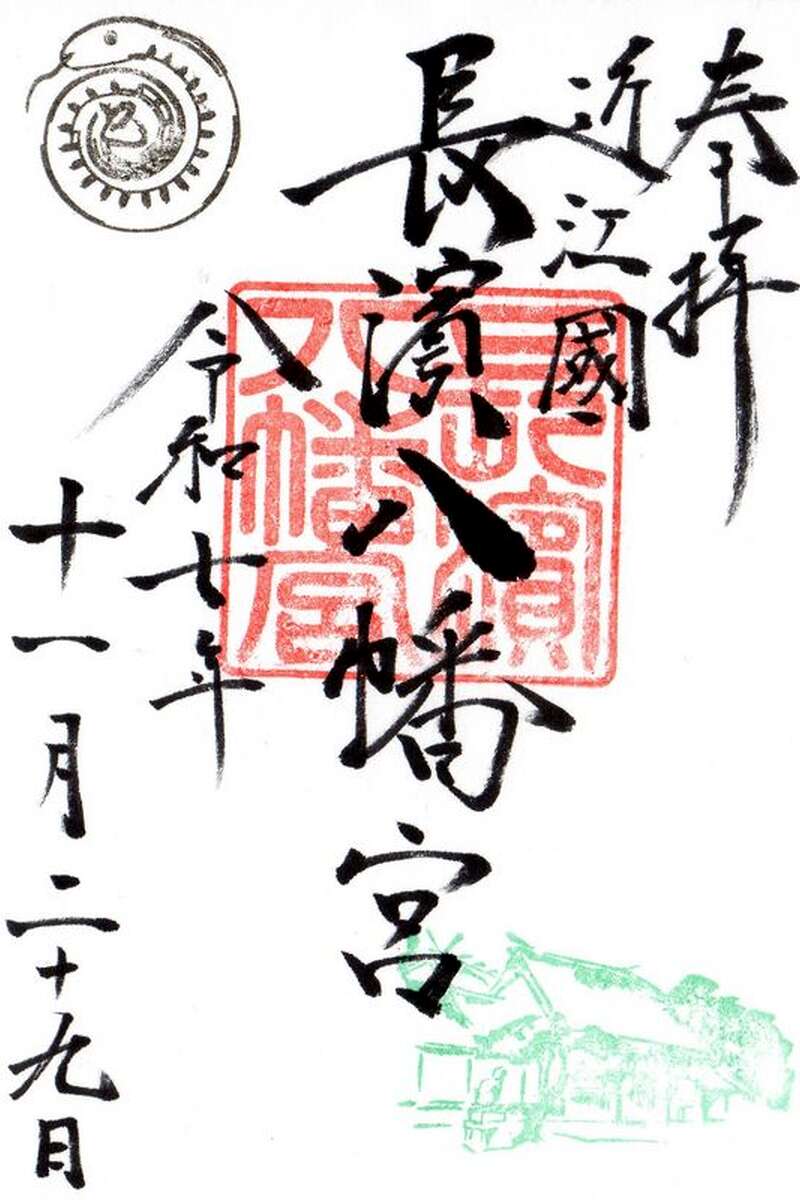 奉拝
近江國
長濱八幡宮
長濱
八幡宮
令和七年
十一月二十九日
巳